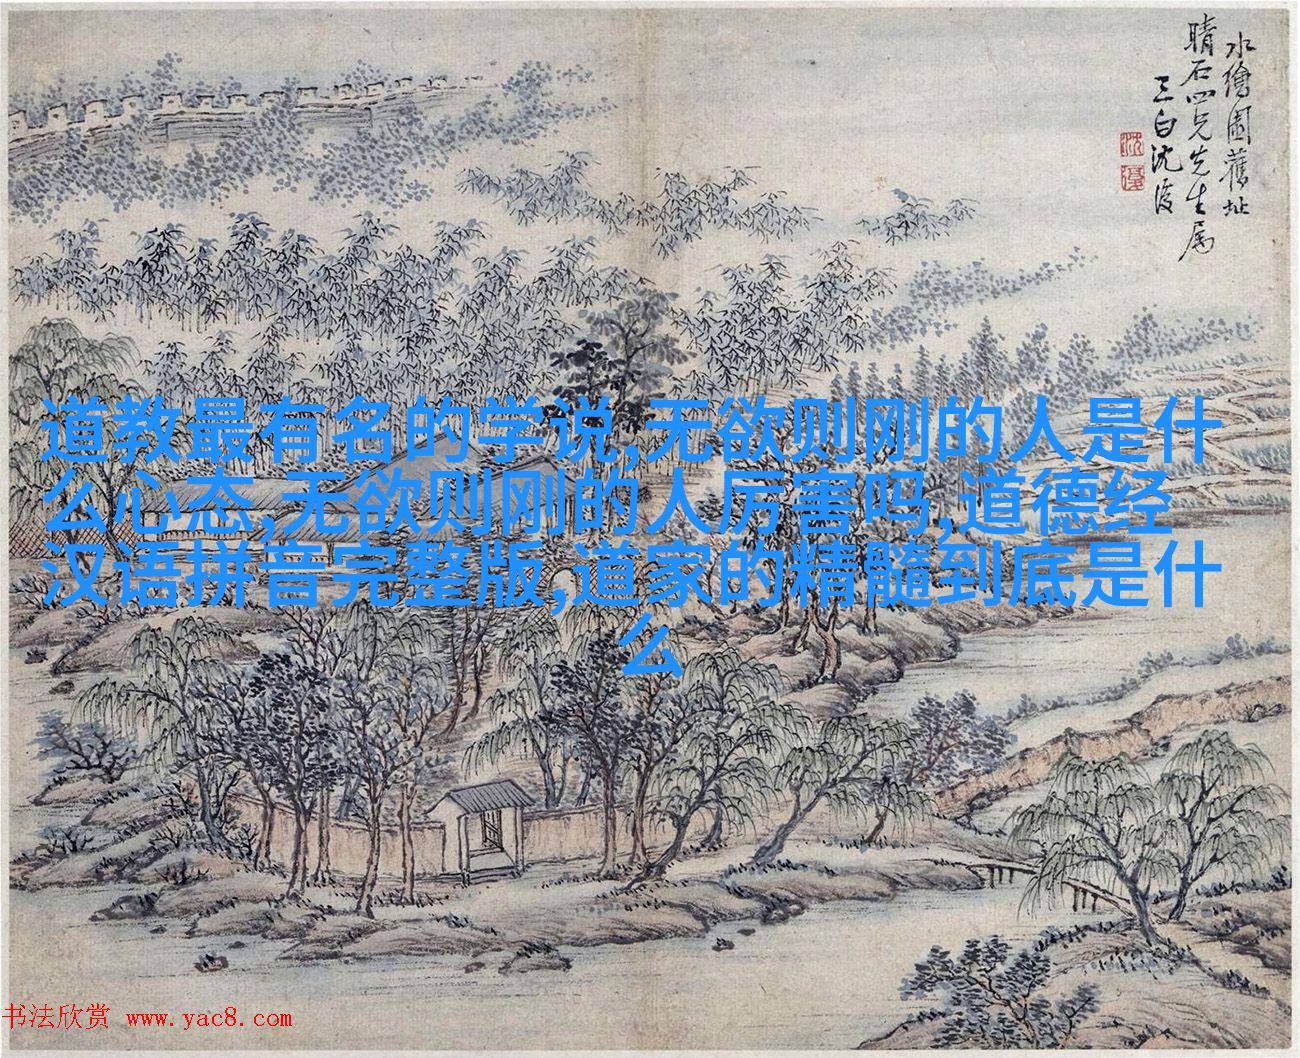 水繪園舊址
晴石四兄先生属
三白沈復
沈
復
道教最有名的学说,无欲则刚的人是什
么心态,无欲则刚的人厉害吗,道德经
汉语拼音完整版,道家的精髓到底是什
么
书法欣赏 www.yac8.com